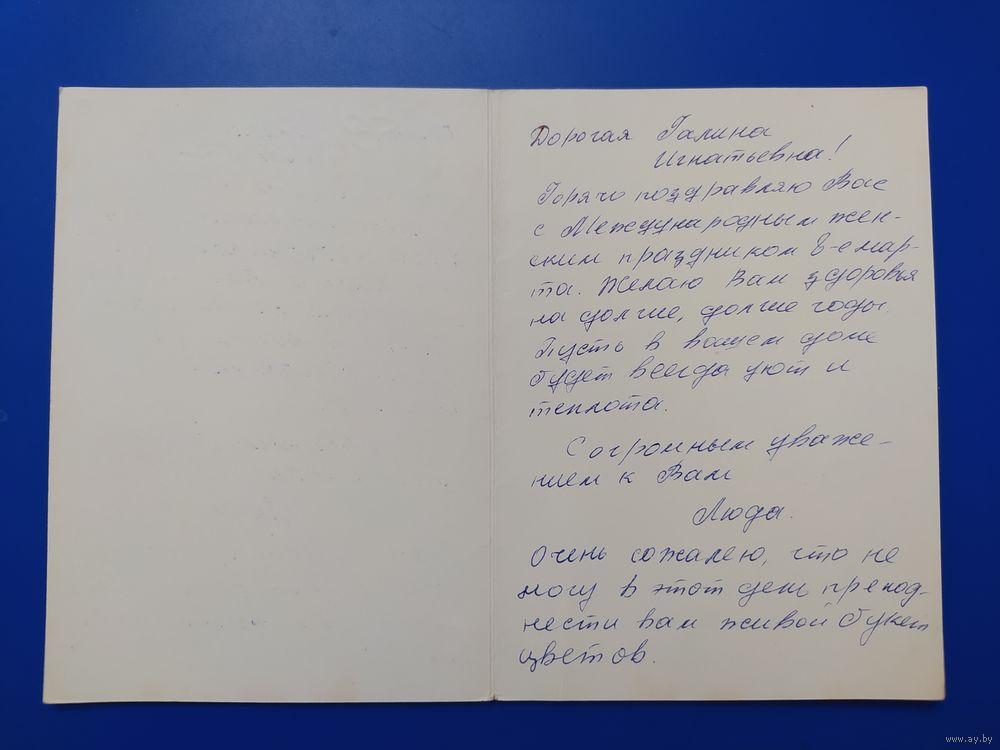 Дорогая Галина
Игнатьевна!
Горячо поздравляю Вас
с Международным жен-
ским праздником 8-е мар-
та. Желаю Вам здоровья
на долгие, долгие годы.
Пусть в вашем доме
будет всегда уют и
теплота.
С огромным уваже-
нием к Вам
Люда.
Очень сожалею, что не
могу в этот день препод-
нести вам живой букет
цветов.
www.ay.by